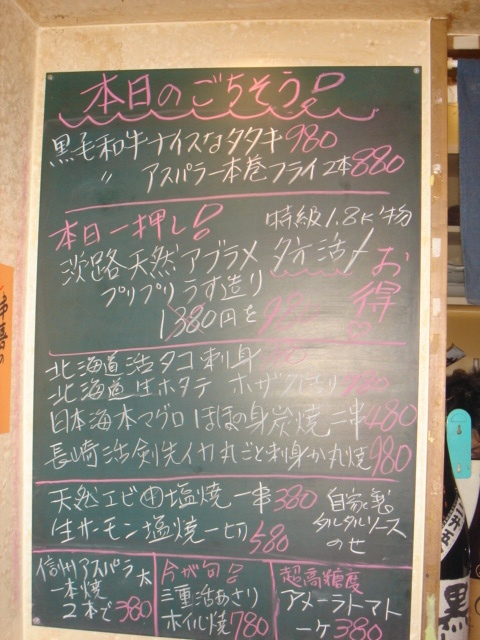 本日のごちそう!
黒毛和牛ナイスなタタキ980
〃 アスパラ一本巻フライ2本880
本日一押し!
特級1.8K物
淡路天然アブラメ 夕方活〆
プリプリうす造り
1380円を
お得
北海道活タコ刺身
北海道生ホタテ
日本海本マグロ ほほの身炭焼二串480
長崎活剣先イカ丸ごと刺身か丸焼980
天然エビ中塩焼一串380
生サーモン塩焼一切580
自家製
タルタルソース
のせ
信州アスパラ太
一本焼
2本で380
今が旬!
三重活あさり
ホイル焼780
超高糖度
アメーラトマト
一ケ380
黒